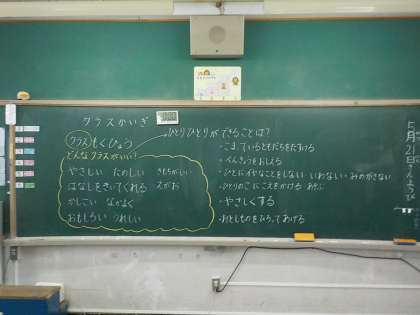 クラスかいぎ
クラスもくひょう
どんなクラスがいい？
やさしい たのしい きもちがいい
はなしをきいてくれる えがお
かしこい なかよく
おもしろい うれしい
ひとりひとりができることは？
・こまっているともだちをたすける
・べんきょうをおしえる
・ひとにイヤなことをしない・いわない・みのがさない
・ひとりのこにこえをかける あそぶ
・やさしくする
・おとしものをひろってあげる
5月21日